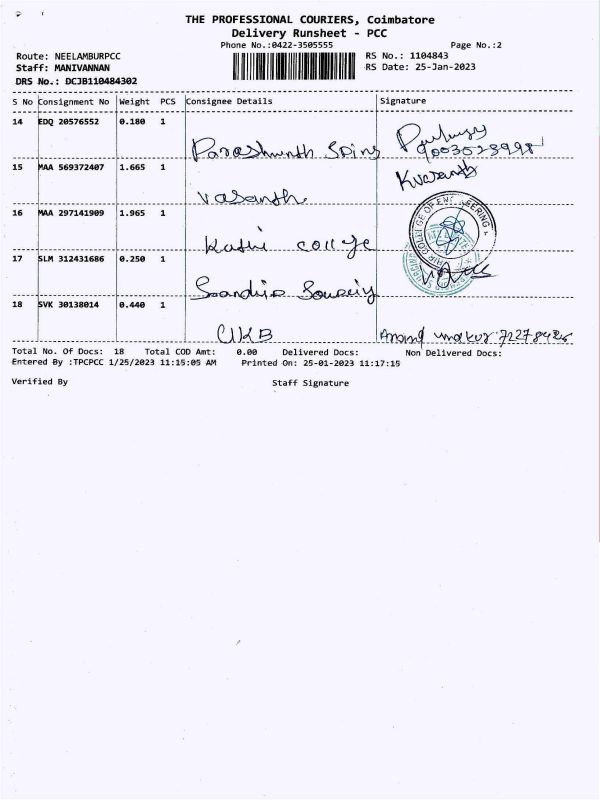 THE PROFESSIONAL COURIERS, Coimbatore
Delivery Runsheet - PCC
Phone No.:0422-3505555 Page No.:2
Route: NEELAMBURPCC RS No.: 1104843
Staff: MANIVANNAN RS Date: 25-Jan-2023
DRS No.: DCJB110484302
S No Consignment No Weight PCS Consignee Details Signature
14 EDQ 20576552 0.180 1
15 MAA 569372407 1.665 1
Vasanth
16 MAA 297141909 1.965 1
college
17 SLM 312431686 0.250 1
18 SVK 30138014 0.440 1
Total No. Of Docs: 18 Total COD Amt: 0.00 Delivered Docs: Non Delivered Docs:
Entered By :TPCPCC 1/25/2023 11:15:05 AM Printed On: 25-01-2023 11:17:15
Verified By Staff Signature